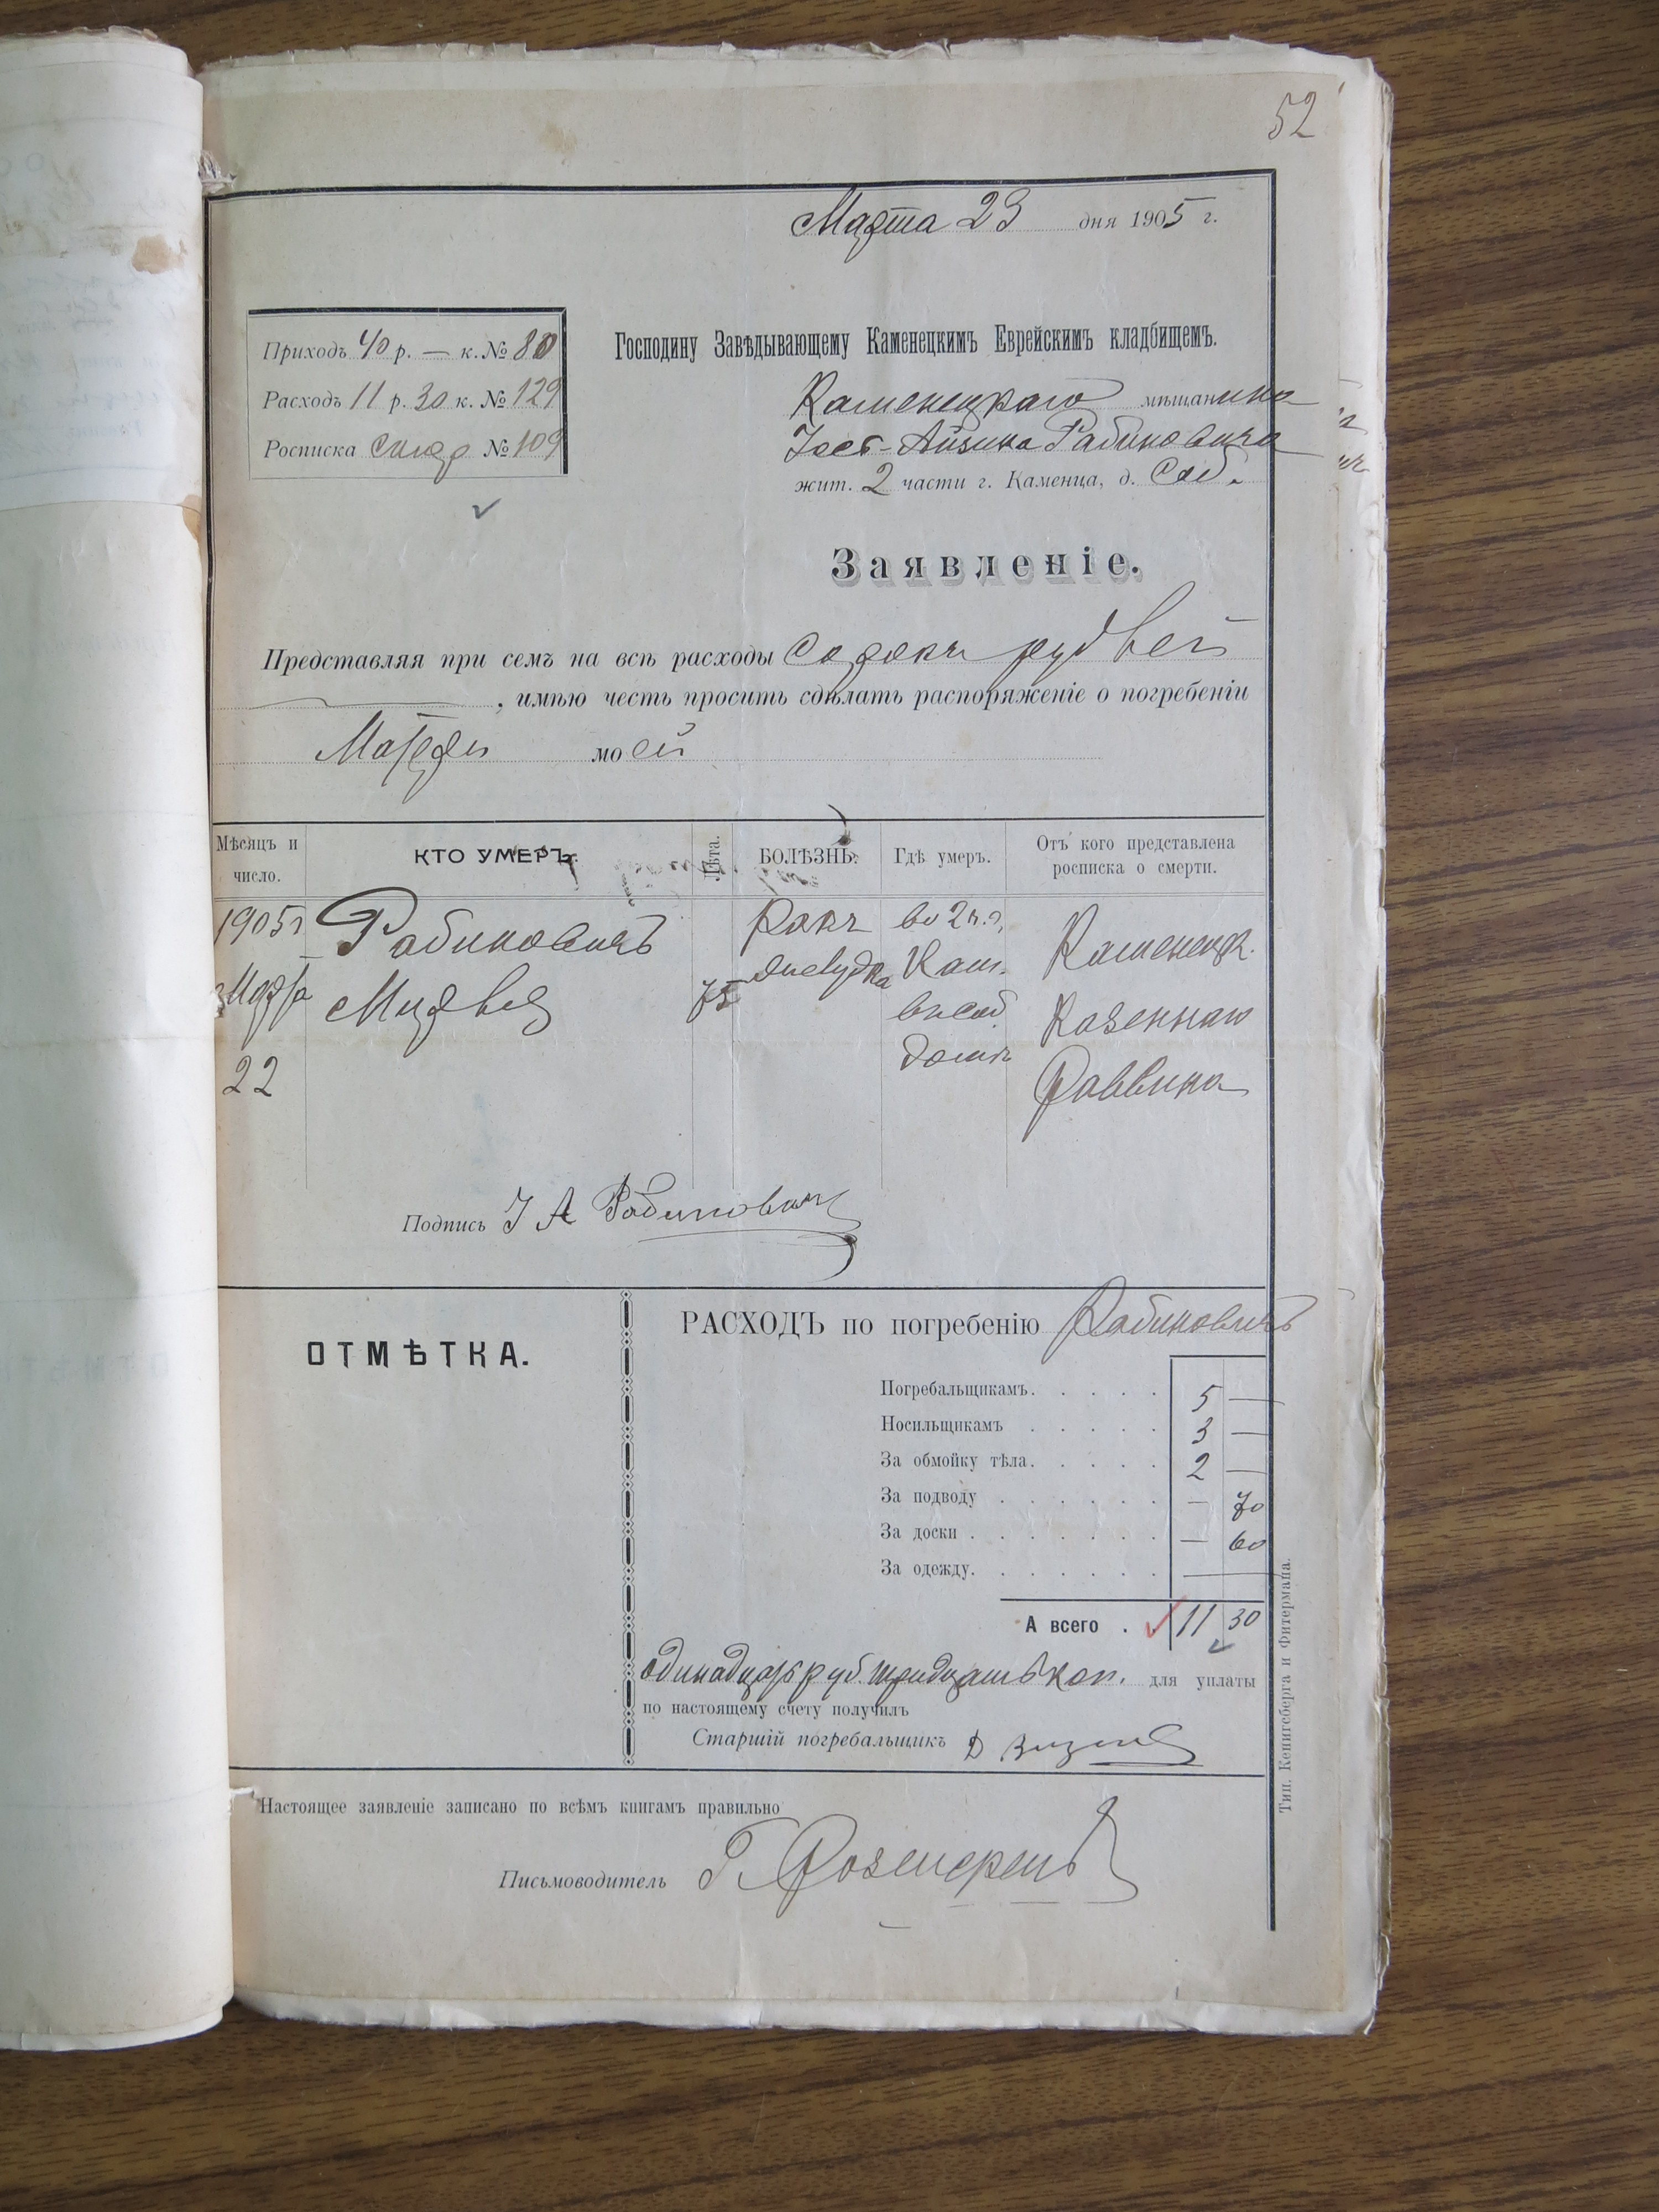 52
Марта 23 дня 1905 г.
Приходъ 40 р. — к. № 80
Расходъ 11 р. 30 к. № 129
Росписка № 109
Господину Завѣдывающему Каменецкимъ Еврейскимъ кладбищемъ.
Каменецкаго мѣщанина
Айзика Рабиновича
жит. 2 части г. Каменца, д. Соб.
Заявленіе.
Представляя при семъ на всѣ расходы Сорокъ рублей
, имѣю честь просить сдѣлать распоряженіе о погребеніи
Матери моей
Мѣсяцъ и число.
КТО УМЕРЪ.
Лѣта.
БОЛѢЗНЬ.
Гдѣ умеръ.
Отъ кого представлена росписка о смерти.
1905 г
Марта
22
Рабиновичъ
75
Ракъ
желудка
во 2 ч. г.
Кам.
въ соб.
домѣ
Каменецк.
Казеннаго
Раввина
Подпись І А Рабиновичъ
ОТМѢТКА.
РАСХОДЪ по погребенію Рабиновичъ
Погребальщикамъ. . . . . 5 —
Носильщикамъ . . . . . 3 —
За обмойку тѣла. . . . . 2 —
За подводу . . . . . . — 70
За доски . . . . . . . — 60
За одежду. . . . . . . —
А всего . . 11 30
одинадцать руб. тридцать коп. для уплаты
по настоящему счету получилъ
Старшій погребальщикъ Д
Настоящее заявленіе записано по всѣмъ книгамъ правильно
Письмоводитель Г.
Тип. Кенигсберга и Фитермана.